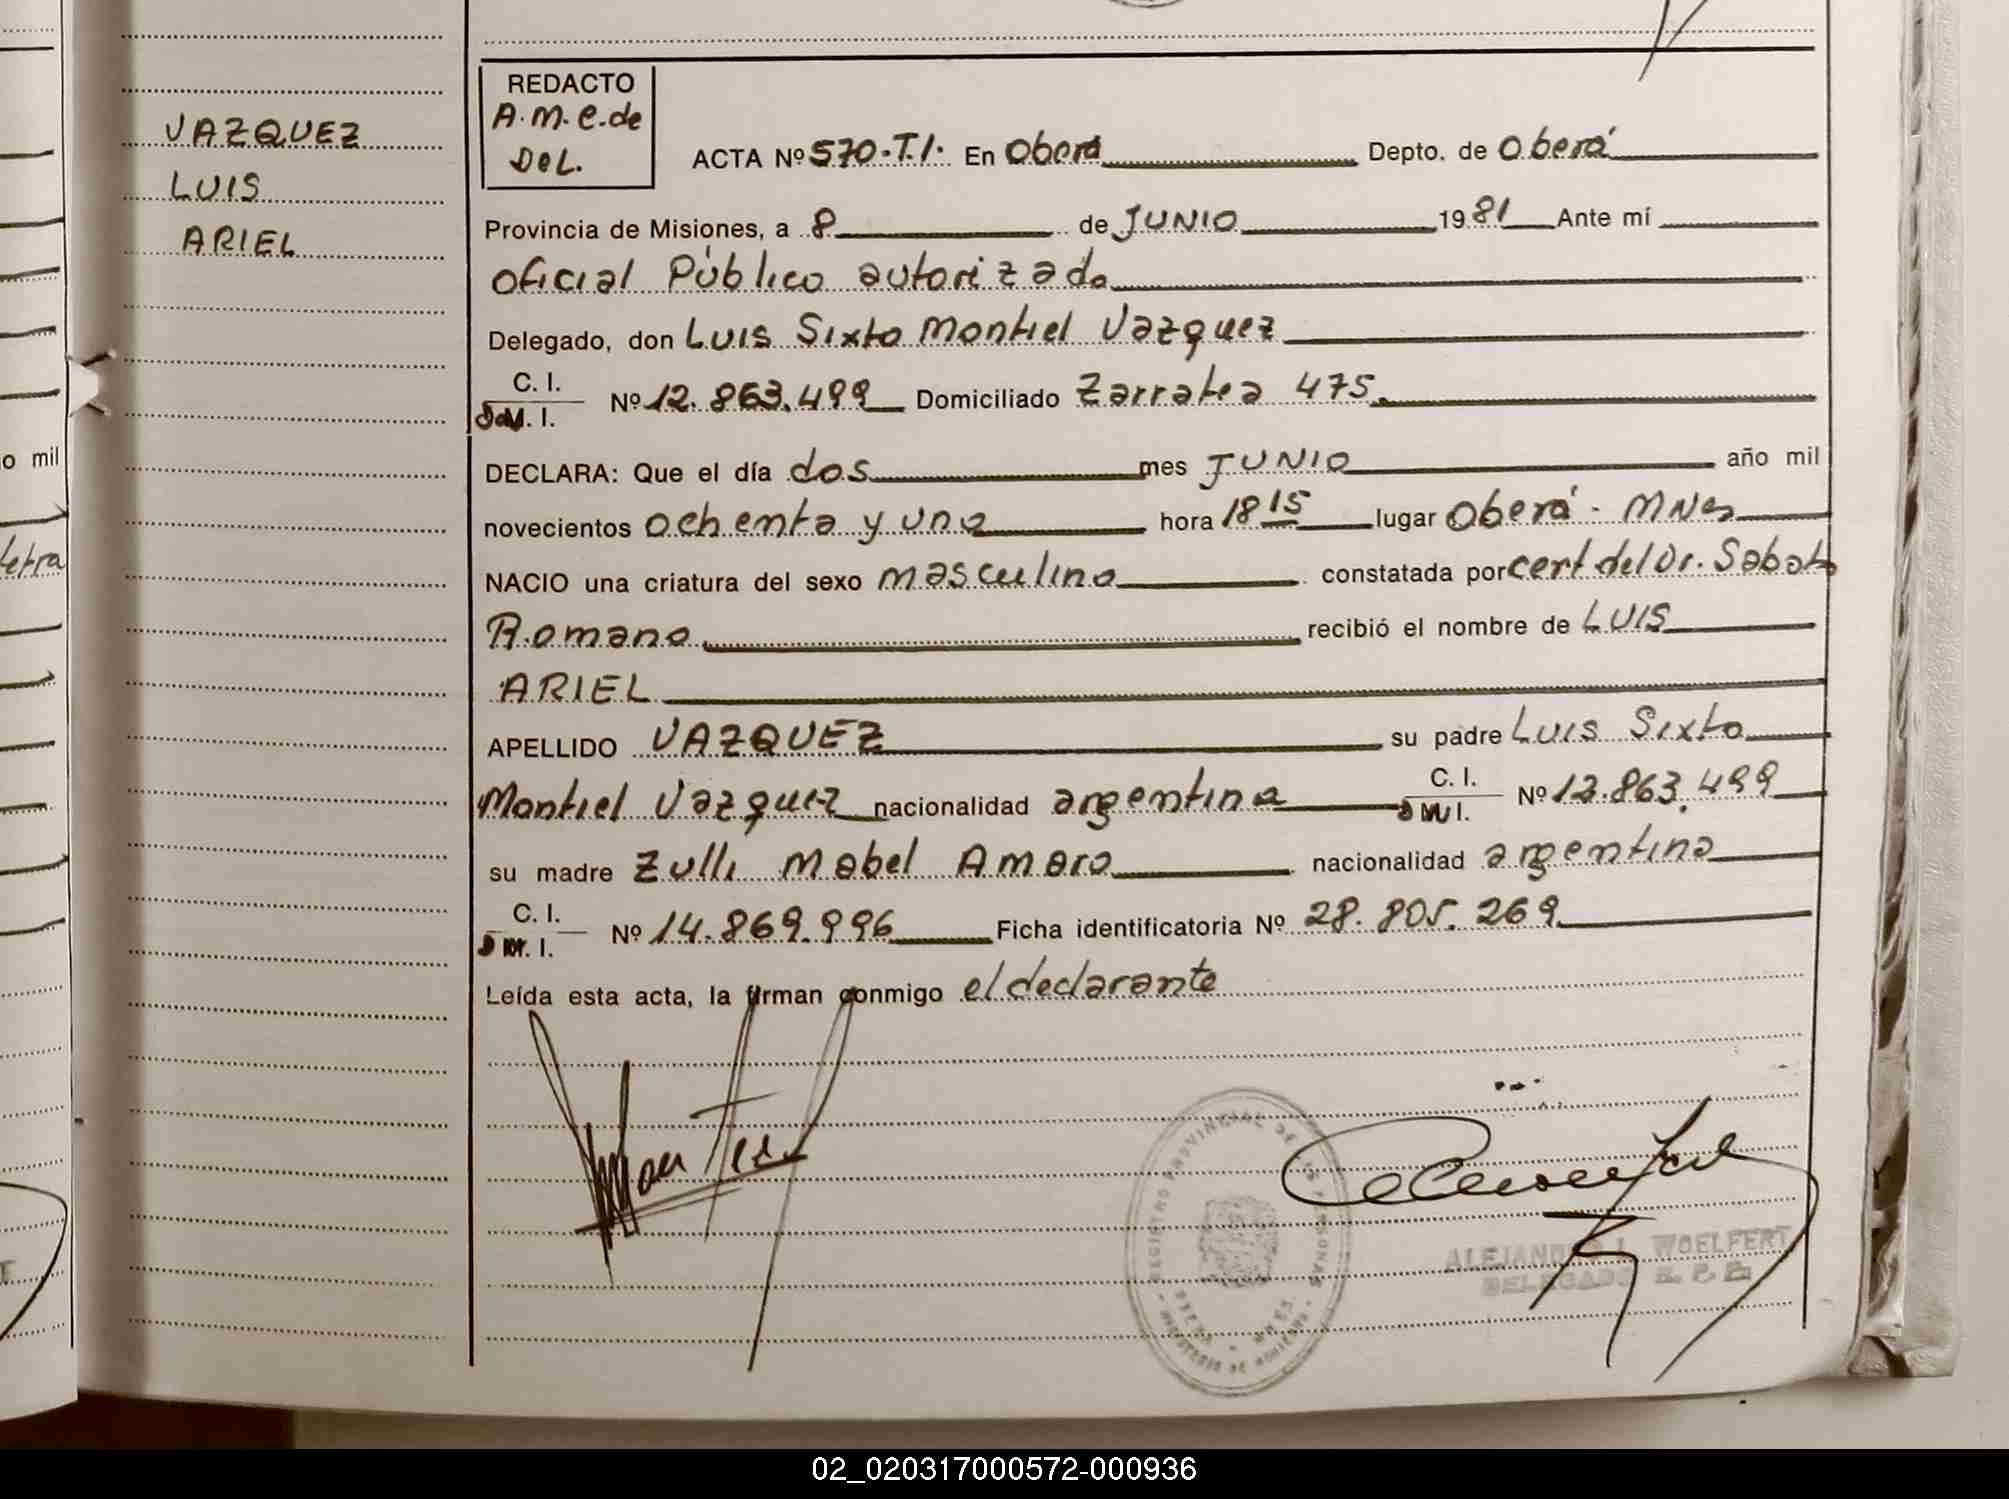 VAZQUEZ
LUIS
ARIEL
o mil
letra
REDACTO
A.M.C.de
Del.
ACTA Nº 570.T.I. En Oberá Depto. de Oberá
Provincia de Misiones, a 8 de JUNIO 1981 Ante mí
oficial Público autorizado
Delegado, don Luis Sixto Montiel Vazquez
C. I.
D.M. I. Nº 12.863.499 Domiciliado Zarratea 475.
DECLARA: Que el día dos mes JUNIO año mil
novecientos ochenta y uno hora 18 15 lugar Oberá - Mnes
NACIO una criatura del sexo masculino constatada por cert del Dr. Sabato
Romano recibió el nombre de LUIS
ARIEL
APELLIDO VAZQUEZ su padre Luis Sixto
Montiel Vazquez nacionalidad argentina C. I. D M I. Nº 12.863.499
su madre Zulli Mabel Amaro nacionalidad argentina
C. I.
D M. I. Nº 14.869.996 Ficha identificatoria Nº 28.805.269
Leída esta acta, la firman conmigo el declarante
REGISTRO PROVINCIAL DE LAS PERSONAS
ALEJANDRO L. WOELFERT
DELEGADO R. P. P.
02_020317000572-000936